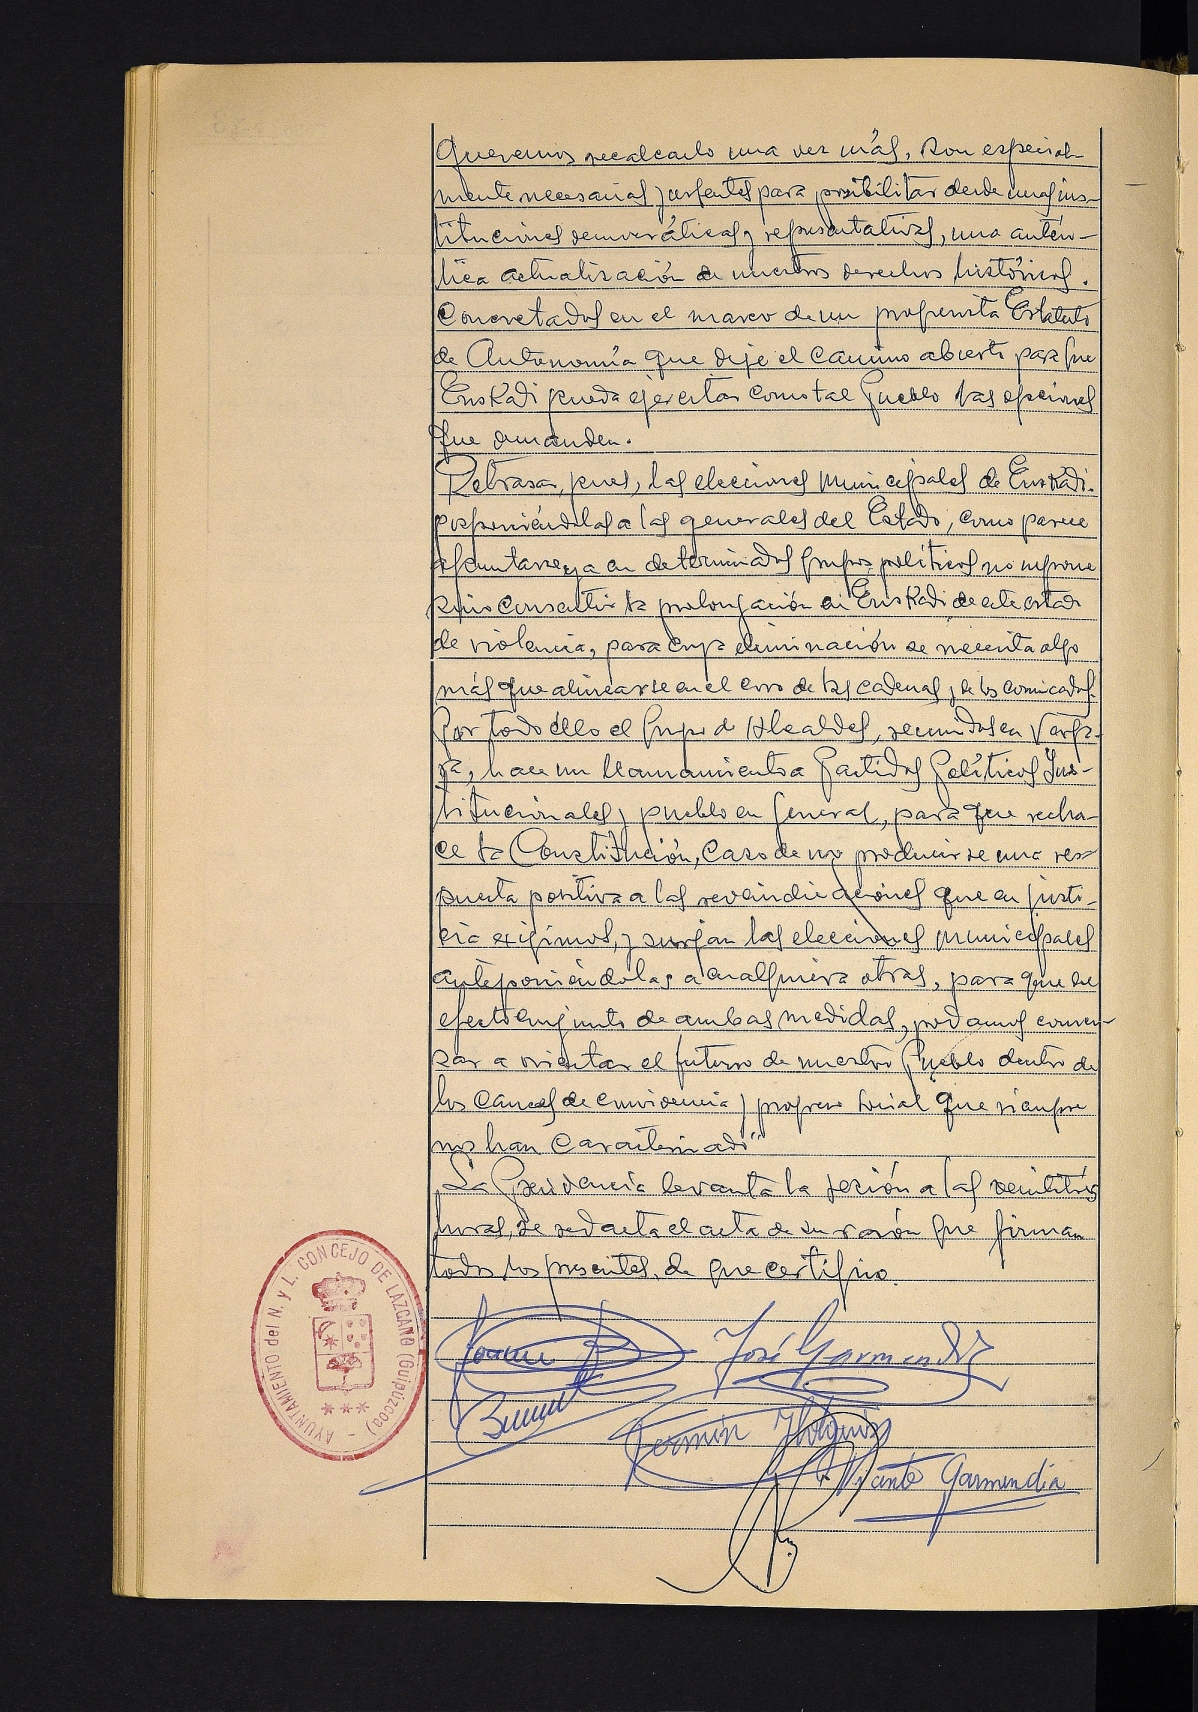 Queremos recalcarlo una vez más, son especial-
mente necesarias y urgentes para posibilitar desde unas ins-
tituciones democráticas y representativas, una autén-
tica actualización de nuestros derechos históricos.
Concretados en el marco de un progresista Estatuto
de Autonomía que deje el camino abierto para que
Euskadi pueda ejercitar como tal Pueblo las opciones
que demanden.
Retrasar, pues, las elecciones municipales de Euskadi.
posponiéndolas a las generales del Estado, como parece
apuntarse ya en determinados grupos políticos no supone
sino consentir la prolongación en Euskadi de este estado
de violencia, para cuya eliminación se necesita algo
más que alinearse en el coro de las cadenas y de los comunicados.
Por todo ello el Grupo de Alcaldes, reunidos en Verga-
ra, hace un llamamiento a Partidos Políticos Ins-
titucionales y pueblo en General, para que recha-
ce la Constitución, caso de no producirse una res-
puesta positiva a las reveindicaciones que en justi-
cia exigimos, y surjan las elecciones municipales
anteponiéndolas a cualquiera otras, para que de
efecto conjunto de ambas medidas, podamos comen-
zar a orientar el futuro de nuestro Pueblo dentro de
los cauces de convivencia y progreso social que siempre
nos han caracterizado"
La Presidencia levanta la sesión a las veintitrés
horas, se redacta el acta de su razón que firman
todos los presentes, de que certifico.
AYUNTAMIENTO del N. y L. CONCEJO DE LAZCANO (Guipúzcoa)
José Garmendia
Fermin
Garmendia